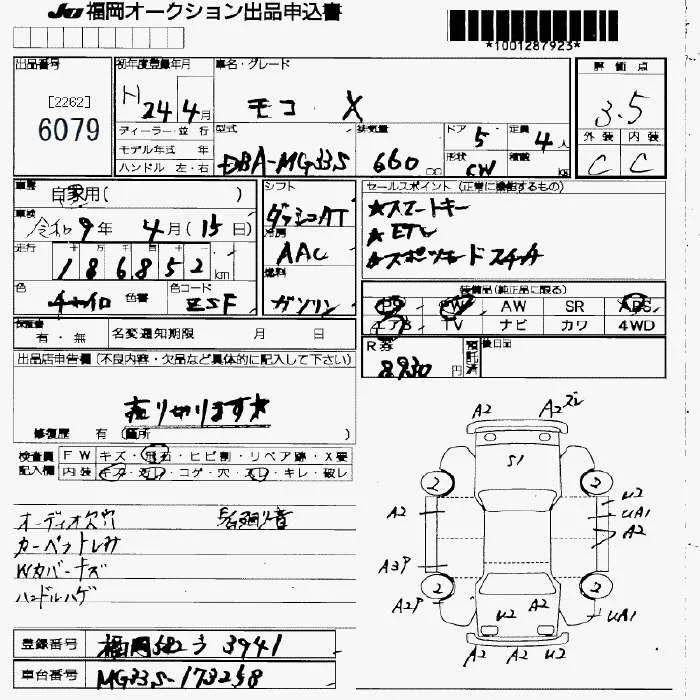 JU 福岡オークション出品申込書
*1001287923*
出品番号
[2262]
6079
初年度登録年月
H 24 4月
車名・グレード
モコ X
評価点
3.5
外装 内装
C C
ディーラー・並行
モデル年式 年
ハンドル 左・右
型式
DBA-MG33S
排気量
660 cc
ドア 5
定員 4人
形状 CW
積数 kg
車歴
自家用( )
車検
令和9年 4月(15日)
走行
十 万 千 百 十 一
186852 km
色
チャイロ 色番
色コード
ZSF
シフト
ダッシュAT
冷房
AAC
燃料
ガソリン
セールスポイント(正常に機能するもの)
★スマートキー
★ETC
装備品(純正品に限る)
PS PW AW SR ABS
エアB TV ナビ カワ 4WD
保証書
有・無
名変通知期限 月 日
R券
8930円
預託済
後日
出品店申告欄(不良内容・欠品など具体的に記入して下さい)
売り切ります★
修復歴 有(箇所 )
検査員記入欄
FW キズ・飛石・ヒビ割・リペア跡・X要
内装 キズ・汚レ・コゲ・穴・スレ・キレ・破レ
オーディオ欠
カーペットしみ
Wカバーキズ
ハンドルハゲ
A2 A2
S1
2 2
U2
A2 UA1
A2
A3P
2 2
A2P U2 A2 UA1
A2 A2 U2
登録番号 福岡582う3941
車台番号 MG33S-173258